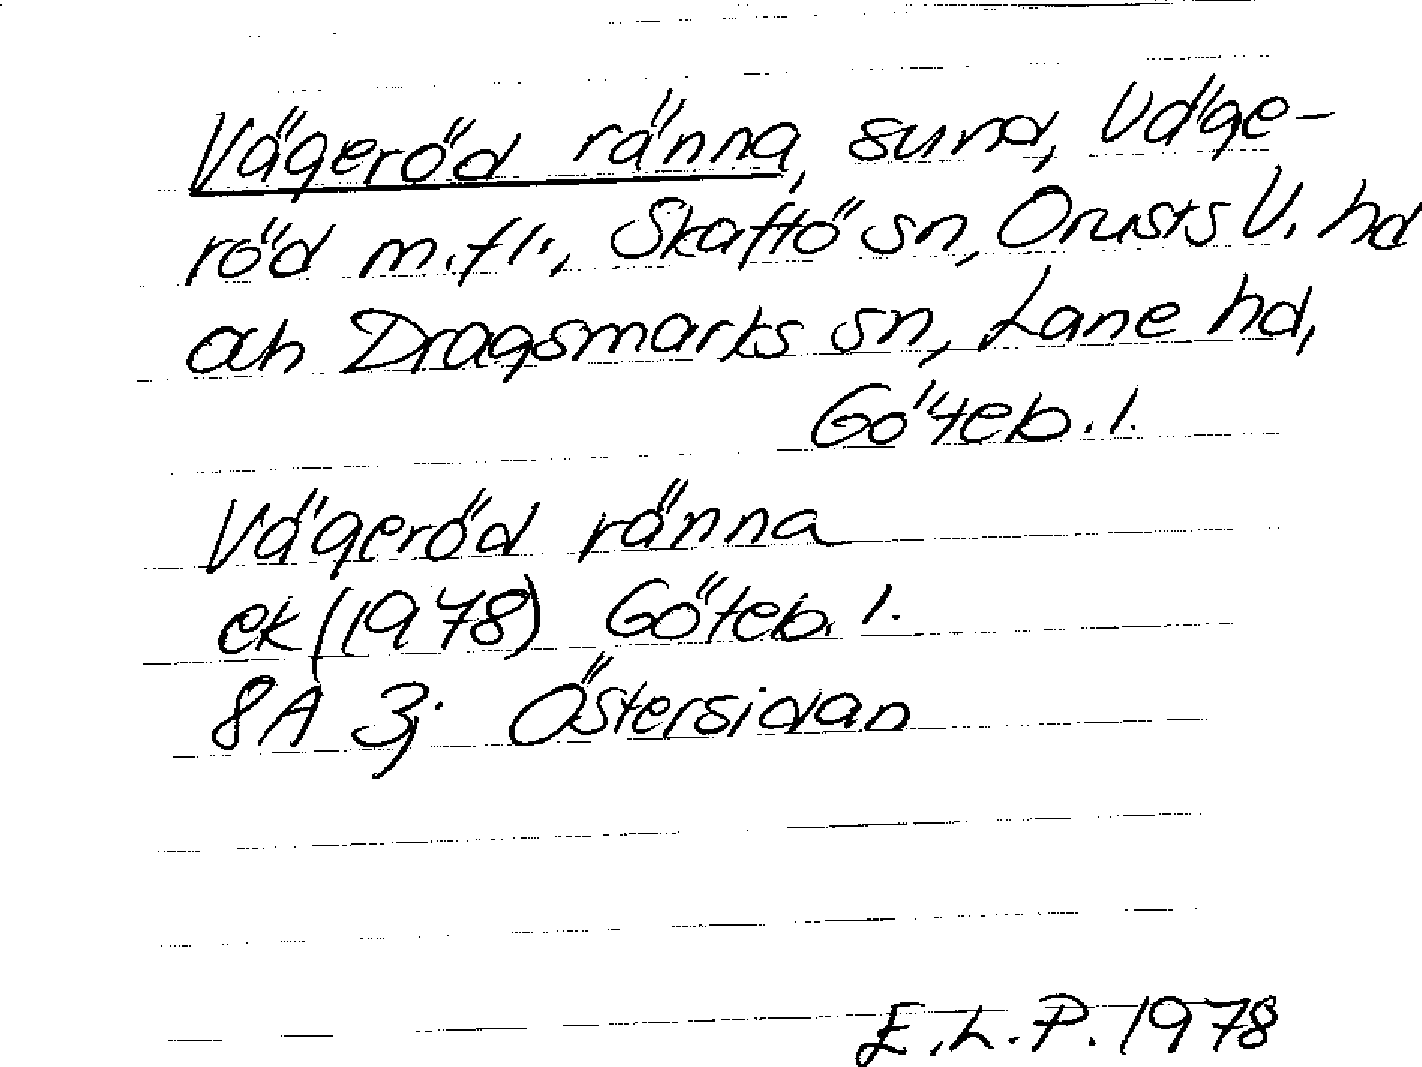 Vägeröd ränna, sund, Väge-
röd m.fl., Skaftö sn, Orusts V. hd
och Dragsmarks sn, Lane hd,
Göteb. l.
Vägeröd ränna
ek (1978) Göteb. l.
8A 3j Östersidan
E.L.P. 1978